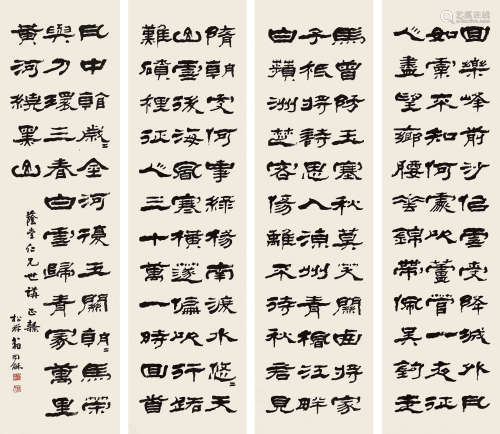 回樂峰前沙似雪受降城外月
如霜不知何處吹蘆管一夜征
人盡望鄉腰垂錦帶佩吳鉤走
馬曾防玉塞秋莫笑關西將家
子祇將詩思入涼州青楓江畔
白蘋洲楚客傷離不待秋君見
隋朝更何事綠楊南渡水悠〻天
山雪後海風寒橫笛偏吹行路
難磧裡征人三十萬一時回首
月中看歲〻金河復玉關朝〻馬策
與刀環三春白雪歸青冢萬里
黃河繞黑山
蔭堂仁兄世講正隸
松禪翁同龢